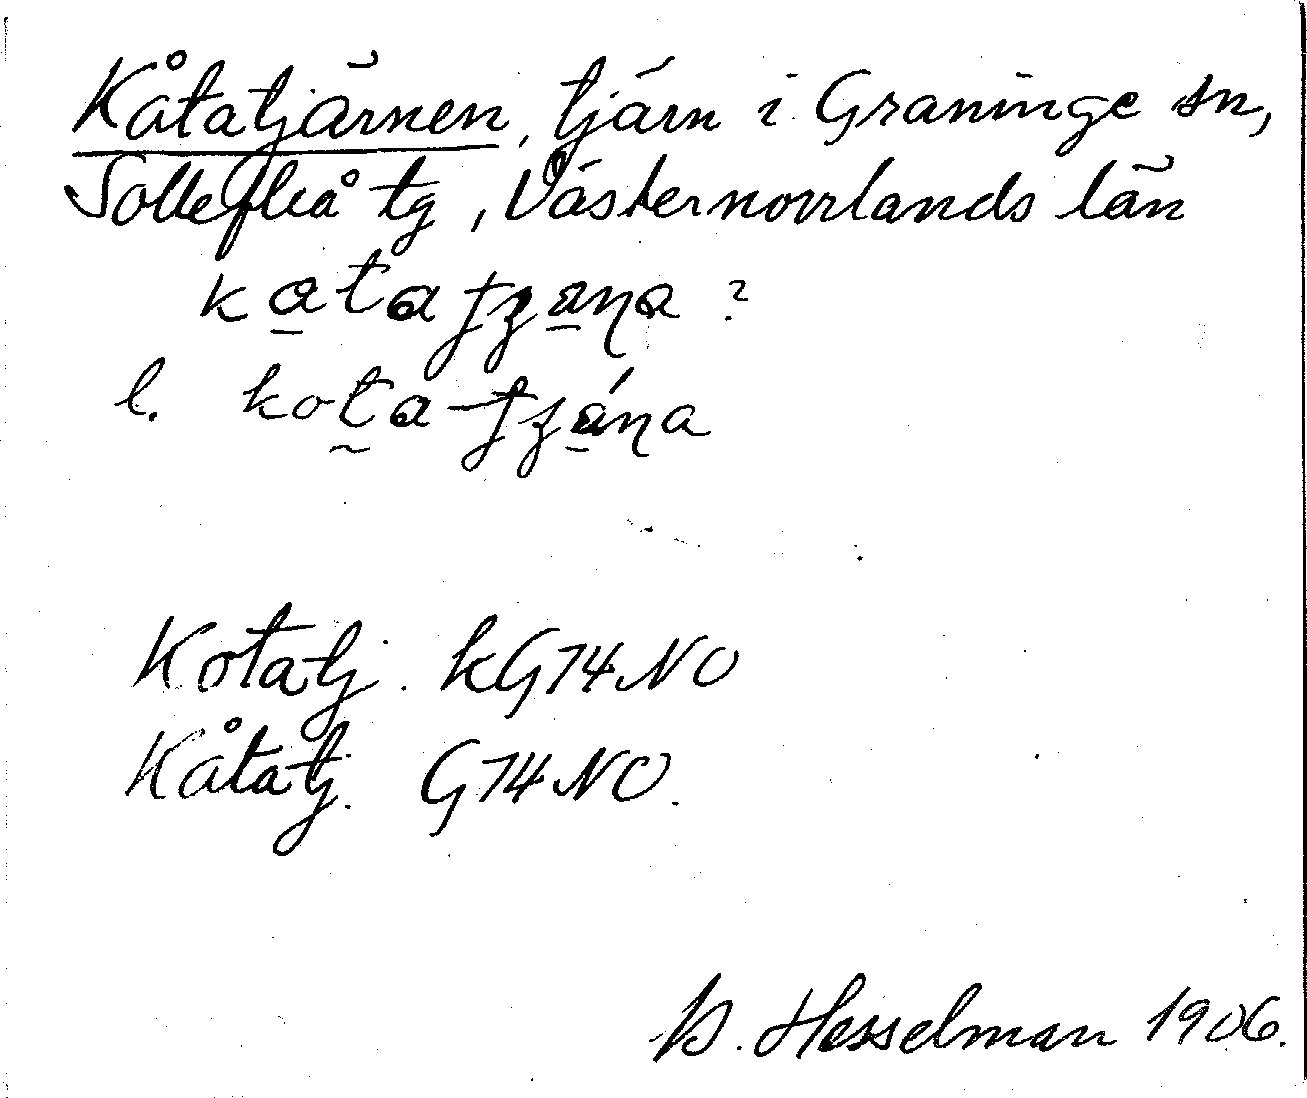 Kåtatjärnen, tjärn i Graninge sn,
Sollefteå tg, Västernorrlands län
kata ?
l. kota-
Kotatj. kG74NO
Kåtatj. G74NO.
B. Hesselman 1906.